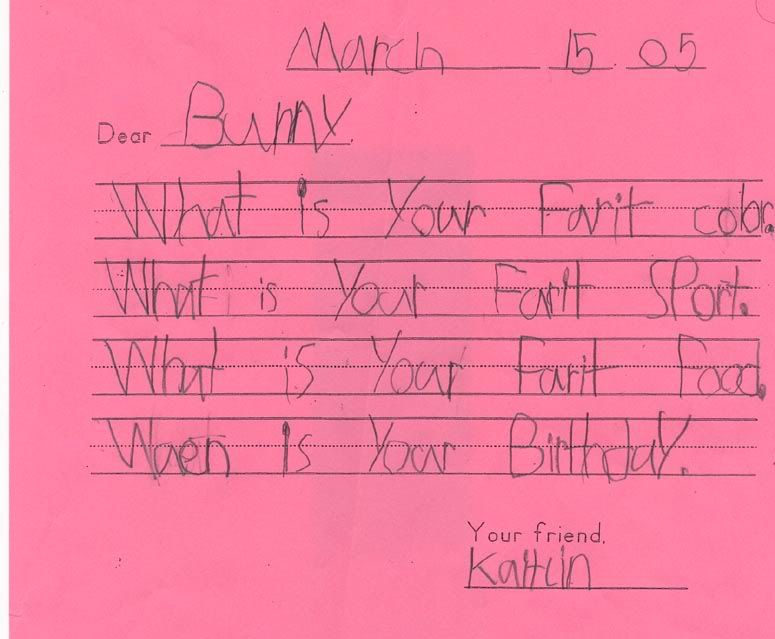 March 15 05
Dear Bunny,
What is Your Farit color.
What is Your Farit SPort.
What is Your Farit Food.
Waen is Your Birthday.
Your friend,
Kaitlin